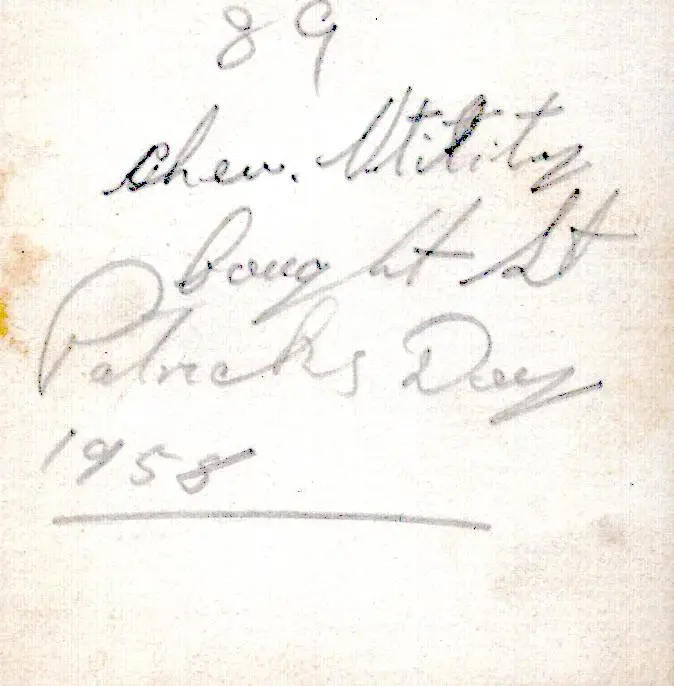 89
chev. Utility
bought St
Patricks Day
1958